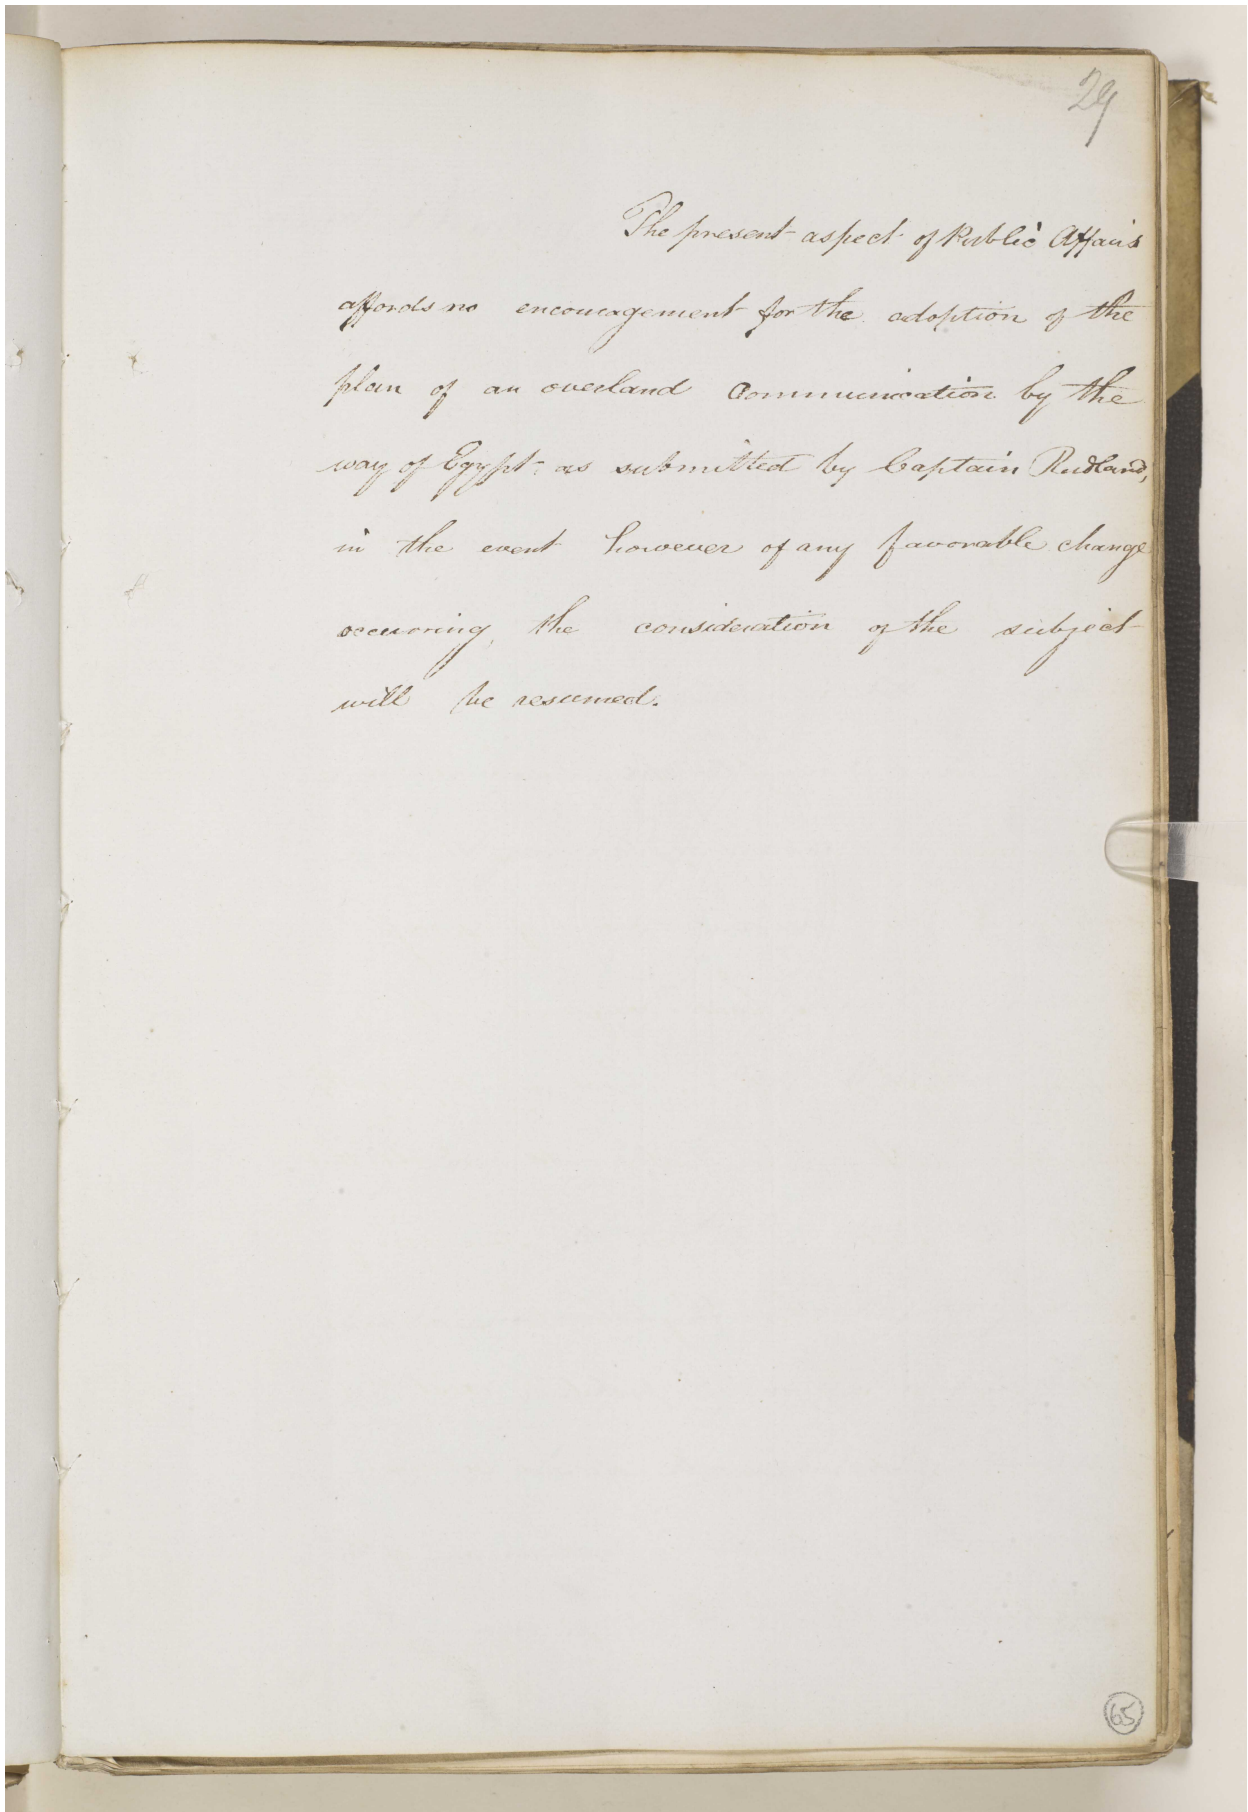 29
The present aspect of Public Affairs
affords no encouragement for the adoption of the
plan of an overland Communication by the
way of Egypt as submitted by Captain Rudland,
in the event however of any favorable change
occurring, the consideration of the subject
will be resumed.
65